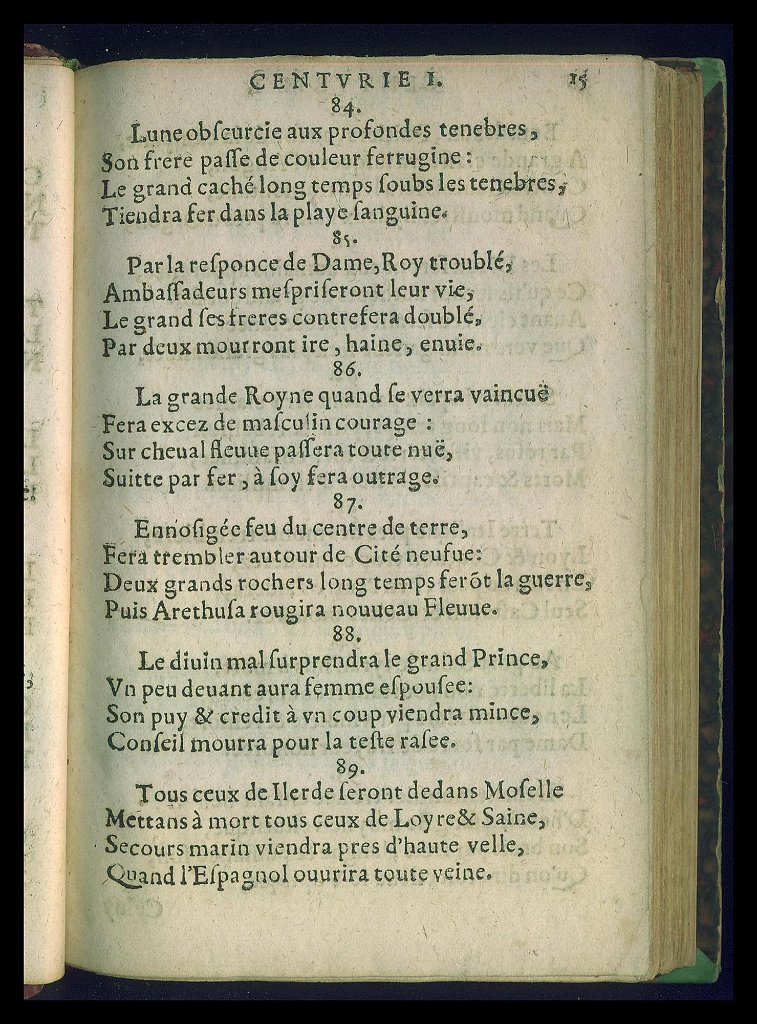 CENTVRIE I. 15
84.
Lune obſcurcie aux profondes tenebres,
Son frere paſſe de couleur ferrugine:
Le grand caché long temps ſoubs les tenebres,
Tiendra fer dans la playe ſanguine.
85.
Par la reſponce de Dame, Roy troublé,
Ambaſſadeurs meſpriſeront leur vie,
Le grand ſes freres contrefera doublé,
Par deux mourront ire, haine, enuie.
86.
La grande Royne quand ſe verra vaincuë
Fera excez de maſculin courage:
Sur cheual fleuue paſſera toute nuë,
Suitte par fer, à foy fera outrage.
87.
Ennoſigée feu du centre de terre,
Fera trembler autour de Cité neufue:
Deux grands rochers long temps ferõt la guerre,
Puis Arethuſa rougira nouueau Fleuue.
88.
Le diuin mal ſurprendra le grand Prince,
Vn peu deuant aura femme eſpouſee:
Son puy & credit à vn coup viendra mince,
Conſeil mourra pour la teſte raſee.
89.
Tous ceux de Ilerde ſeront dedans Moſelle
Mettans à mort tous ceux de Loyre & Saine,
Secours marin viendra pres d'haute velle,
Quand l'Eſpagnol ouurira toute veine.